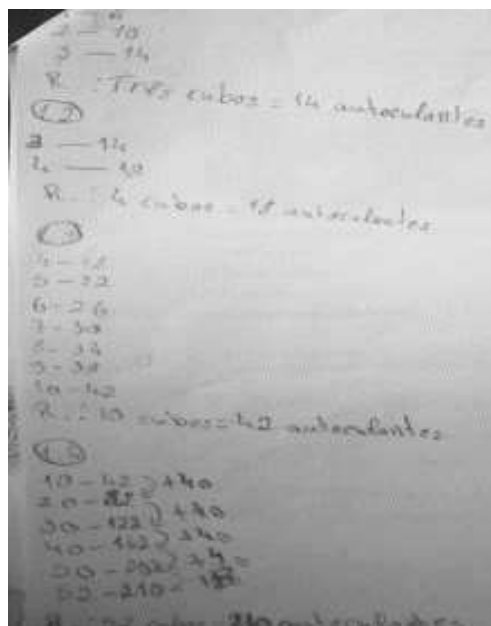 2 — 10
3 — 14
R.: Três cubos = 14 autoculantes
1.2
3 — 14
4 — 18
R.: 4 cubos = 18 autoculantes
4 - 18
5 - 22
6 - 26
7 - 30
8 - 34
9 - 38
10 - 42
R.: 10 cubos = 42 autoculantes
10 - 42 ) +40
20 - 82 ) +40
30 - 122 ) +40
40 - 162 ) +40
50 - 202
52 - 210 -
R.: 52 cubos = 210 autoculantes